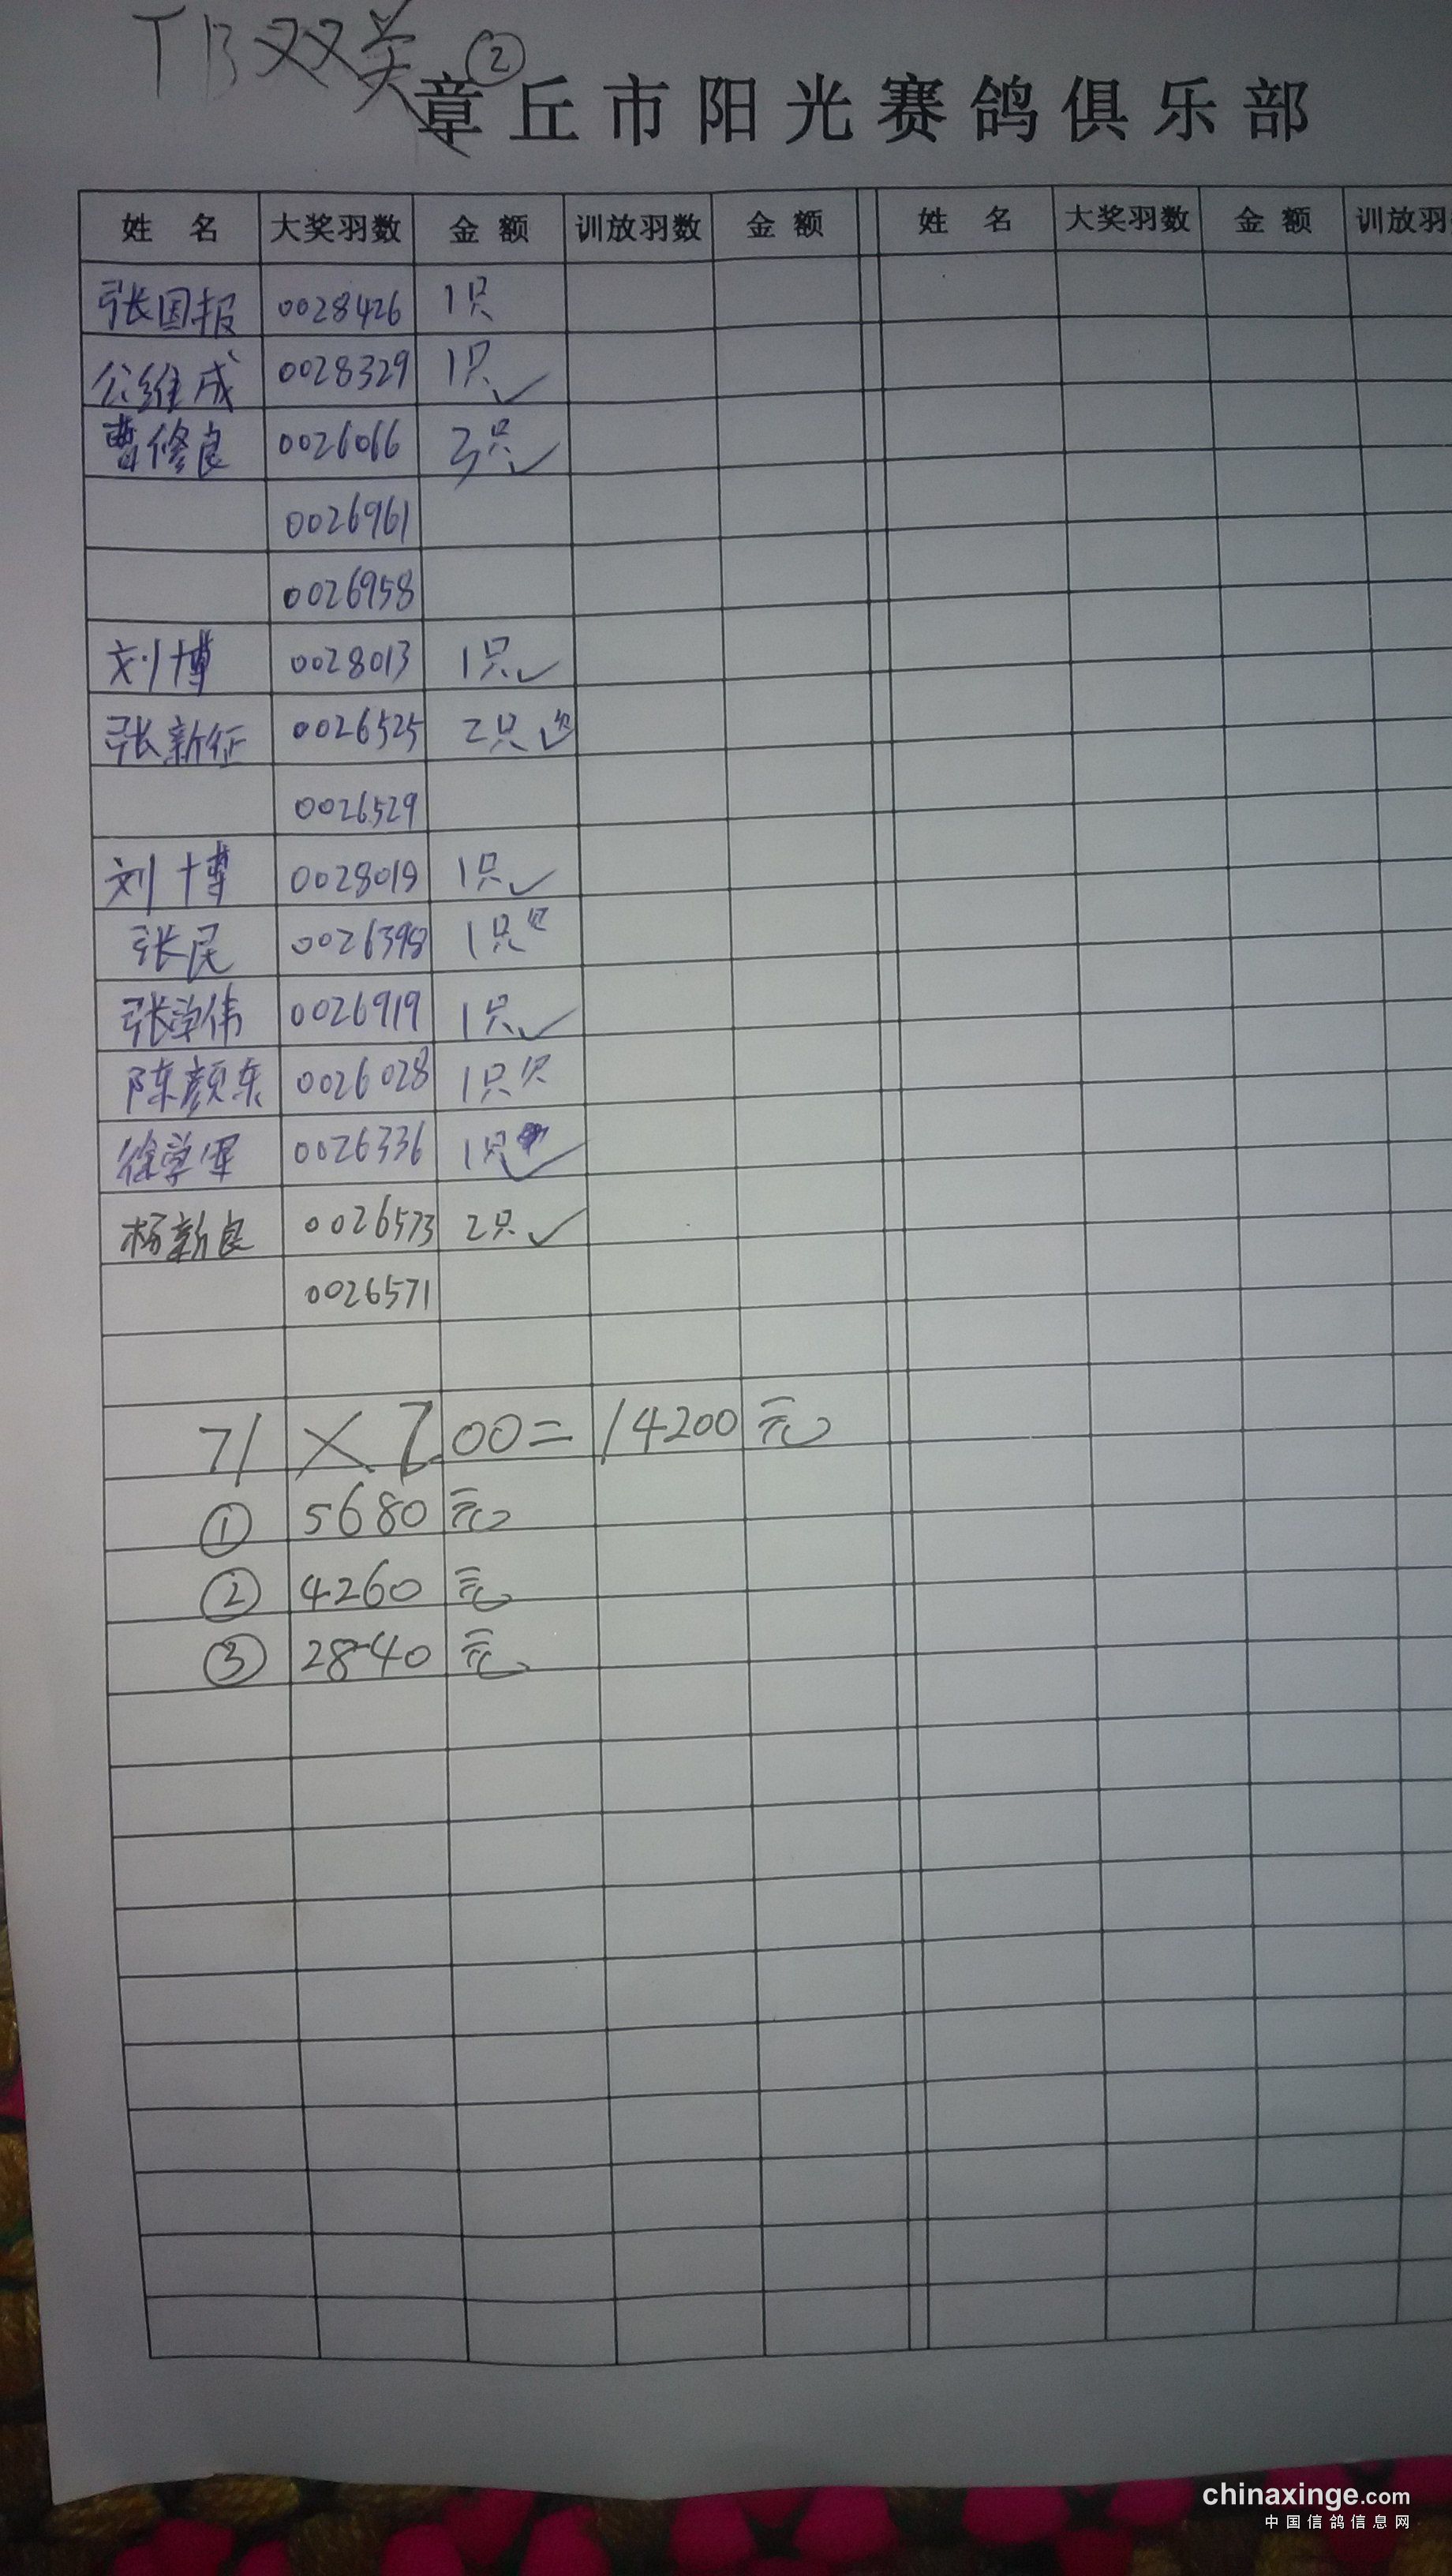 TB双关 ②
章丘市阳光赛鸽俱乐部
姓 名 大奖羽数 金 额 训放羽数 金 额 姓 名 大奖羽数 金 额 训放羽
张国报 0028426 1只
公维成 0028329 1只 ✓
曹修良 0026066 3只 ✓
0026961
0026958
刘博 0028013 1只 ✓
张新征 0026525 2只
0026529
刘博 0028019 1只 ✓
张民 0026398 1只欠
张学伟 0026919 1只 ✓
陈颜东 0026028 1只欠
徐学军 0026336 1只 ✓
杨新良 0026573 2只 ✓
0026571
71 × 200 = 14200元
① 5680元
② 4260元
③ 2840元
chinaxinge.com
中国信鸽信息网